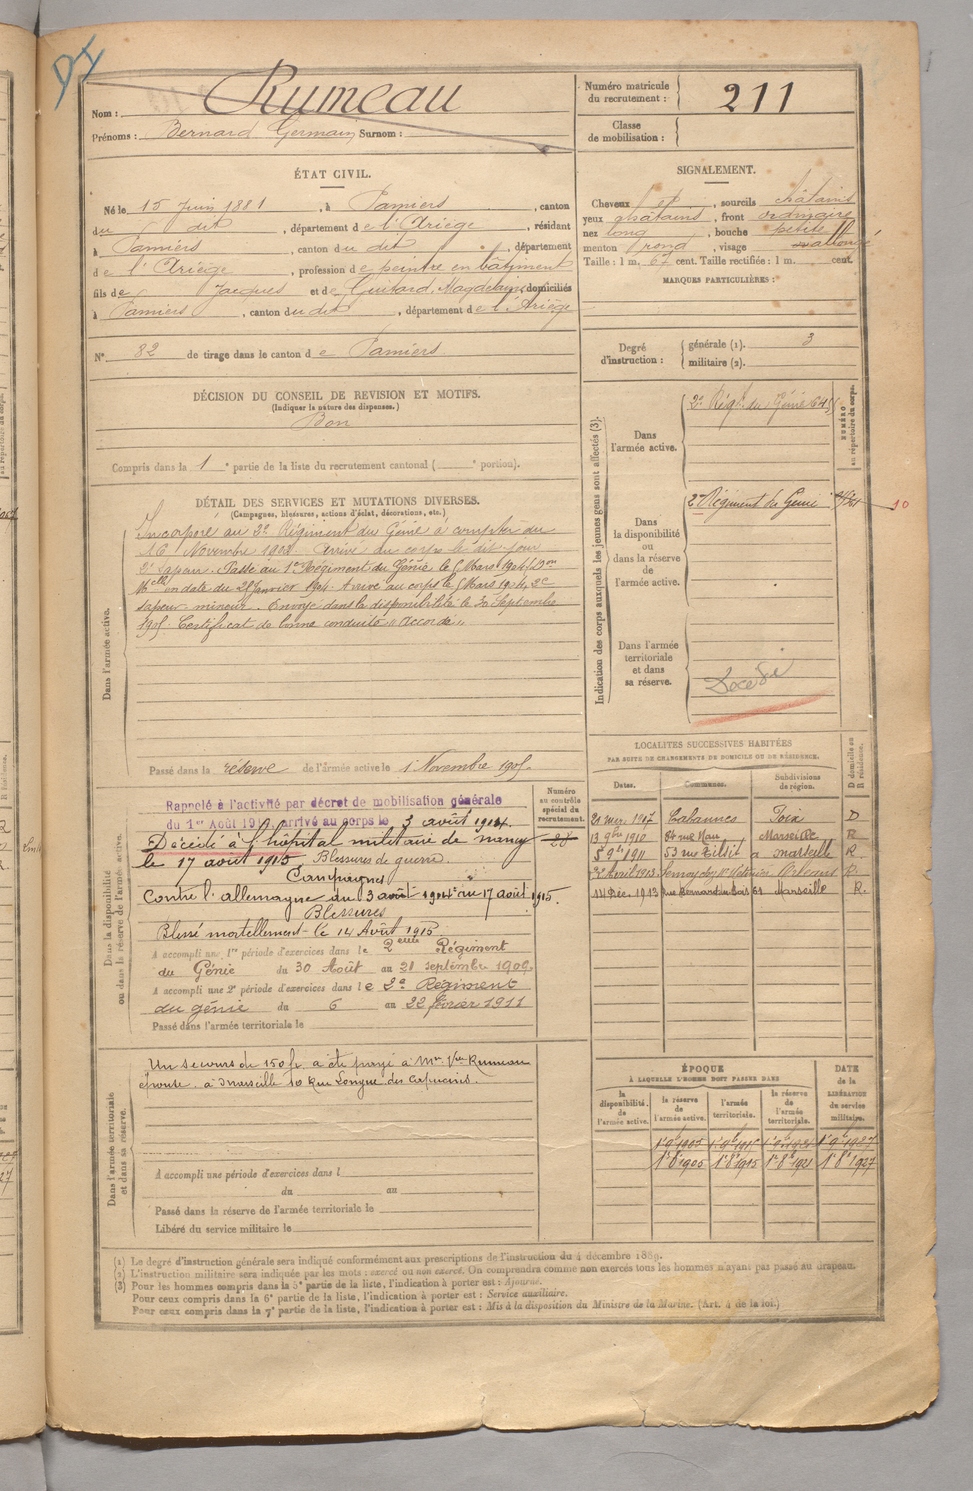 Nom : Rumeau
Prénoms : Bernard Germain Surnom :
Numéro matricule du recrutement : 211
Classe de mobilisation :
ÉTAT CIVIL.
Né le 15 Juin 1881, à Pamiers, canton
du dit, département de l'Ariège, résidant
à Pamiers, canton du dit, département
de l'Ariège, profession de peintre en bâtiment
fils de Jacques et de Guitard, Magdelaine, domiciliés
à Pamiers, canton du dit, département de l'Ariège
N° 82 de tirage dans le canton de Pamiers
SIGNALEMENT.
Cheveux et, sourcils châtains
yeux châtains, front ordinaire
nez long, bouche petite
menton rond, visage allongé
Taille : 1 m. 67 cent. Taille rectifiée : 1 m. cent.
MARQUES PARTICULIÈRES :
Degré d'instruction : générale (1). 3
militaire (2).
DÉCISION DU CONSEIL DE REVISION ET MOTIFS.
(Indiquer la nature des dispenses.)
Bon
Compris dans la 1e partie de la liste du recrutement cantonal ( e portion).
DÉTAIL DES SERVICES ET MUTATIONS DIVERSES.
(Campagnes, blessures, actions d'éclat, décorations, etc.)
Dans l'armée active.
Incorporé au 2e Régiment du Génie à compter du
16 Novembre 1902. Arrivé au corps le dit jour
2e sapeur. Passé au 1er Régiment du Génie le 5 Mars 1904
en date du 28 Janvier 1904. Arrivé au corps le 5 Mars 1904, 2e
sapeur-mineur. Envoyé dans la disponibilité le 30 Septembre
1905. Certificat de bonne conduite "Accordé"
Passé dans la réserve de l'armée active le 1 Novembre 1905
Indication des corps auxquels les jeunes gens sont affectés (3).
NUMÉRO au répertoire du corps.
Dans l'armée active.
2e Régt du Génie
Dans la disponibilité ou dans la réserve de l'armée active.
2e Régiment du Génie
10
Dans l'armée territoriale et dans sa réserve.
Décédé
Dans la disponibilité ou dans la réserve de l'armée active.
Numéro au contrôle spécial du recrutement.
Rappelé à l'activité par décret de mobilisation générale
du 1er Août 1914 arrivé au corps le 3 août 1914
Décédé à l'hôpital militaire de nancy
le 17 août 1915. Blessures de guerre.
Campagnes
Contre l'allemagne du 3 août 1914 au 17 août 1915.
Blessures
Blessé mortellement le 14 Août 1915
A accompli une 1re période d'exercices dans le 2eme Régiment
du Génie du 30 Août au 21 septembre 1909.
A accompli une 2e période d'exercices dans le 2e Régiment
du génie du 6 au 22 février 1911
Passé dans l'armée territoriale le
LOCALITÉS SUCCESSIVES HABITÉES
PAR SUITE DE CHANGEMENTS DE DOMICILE OU DE RÉSIDENCE.
Dates. Communes. Subdivisions de région. D domicile ou R résidence.
Cabannes Foix D
13 9bre 1910 Marseille R
5 9bre 1911 53 rue Tilsit à marseille R
Avril 1913 Orléans R.
14 Déc. 1913 rue Bernard du Bois 61 Marseille R.
Dans l'armée territoriale et dans sa réserve.
Un secours de 150 fr. a été payé à Mme Vve Rumeau
épouse, à marseille 10 Rue Longue des Capucins.
A accompli une période d'exercices dans l
du au
Passé dans la réserve de l'armée territoriale le
Libéré du service militaire le
ÉPOQUE
À LAQUELLE L'HOMME DOIT PASSER DANS
DATE de la LIBÉRATION du service militaire.
la disponibilité de l'armée active. la réserve de l'armée active. l'armée territoriale. la réserve de l'armée territoriale.
1er 8bre 1905 1er 8bre 1915 1er 8bre 1921 1er 8bre 1927
(1) Le degré d'instruction générale sera indiqué conformément aux prescriptions de l'instruction du 4 décembre 1889.
(2) L'instruction militaire sera indiquée par les mots : exercé ou non exercé. On comprendra comme non exercés tous les hommes n'ayant pas passé au drapeau.
(3) Pour les hommes compris dans la 5e partie de la liste, l'indication à porter est : Ajourné.
Pour ceux compris dans la 6e partie de la liste, l'indication à porter est : Service auxiliaire.
Pour ceux compris dans la 7e partie de la liste, l'indication à porter est : Mis à la disposition du Ministre de la Marine. (Art. 4 de la loi.)